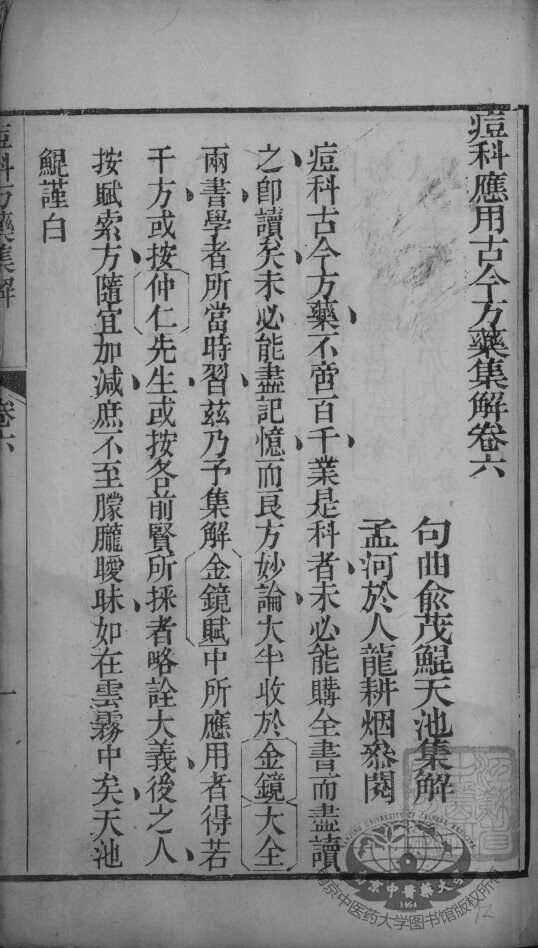 痘科應用古今方藥集解卷六
句曲俞茂鯤天池集解
孟河於人龍耕烟叅閱
痘科古今方藥不啻百千業是科者未必能購全書而盡讀
之卽讀矣未必能盡記憶而良方妙論大半收於金鏡大全
兩書學者所當時習茲乃予集解金鏡賦中所應用者得若
千方或按仲仁先生或按各前賢所採者略詮大義後之人
按賦索方隨宜加減庶不至朦朧曖昧如在雲霧中矣天池
鯤謹白
痘科方藥集解
卷六
一
南京中醫藥大學
1954
南京中医药大学图书馆版权所有